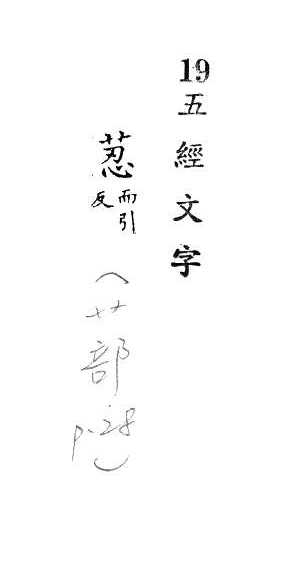 19
五經文字
荵
而引
反
(艹部
p.28)